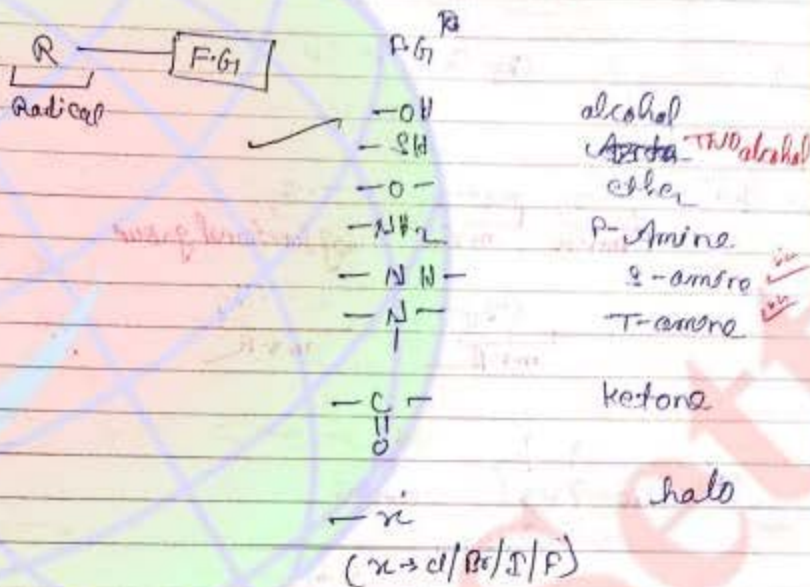 R — F.G
Radical
F.G
-OH alcohol
-SH Thio alcohol
-O- ether
-NH2 P-Amine
-NH- S-amine
-N- T-amine
-C- ketone
||
O
-x halo
(x→Cl/Br/I/F)